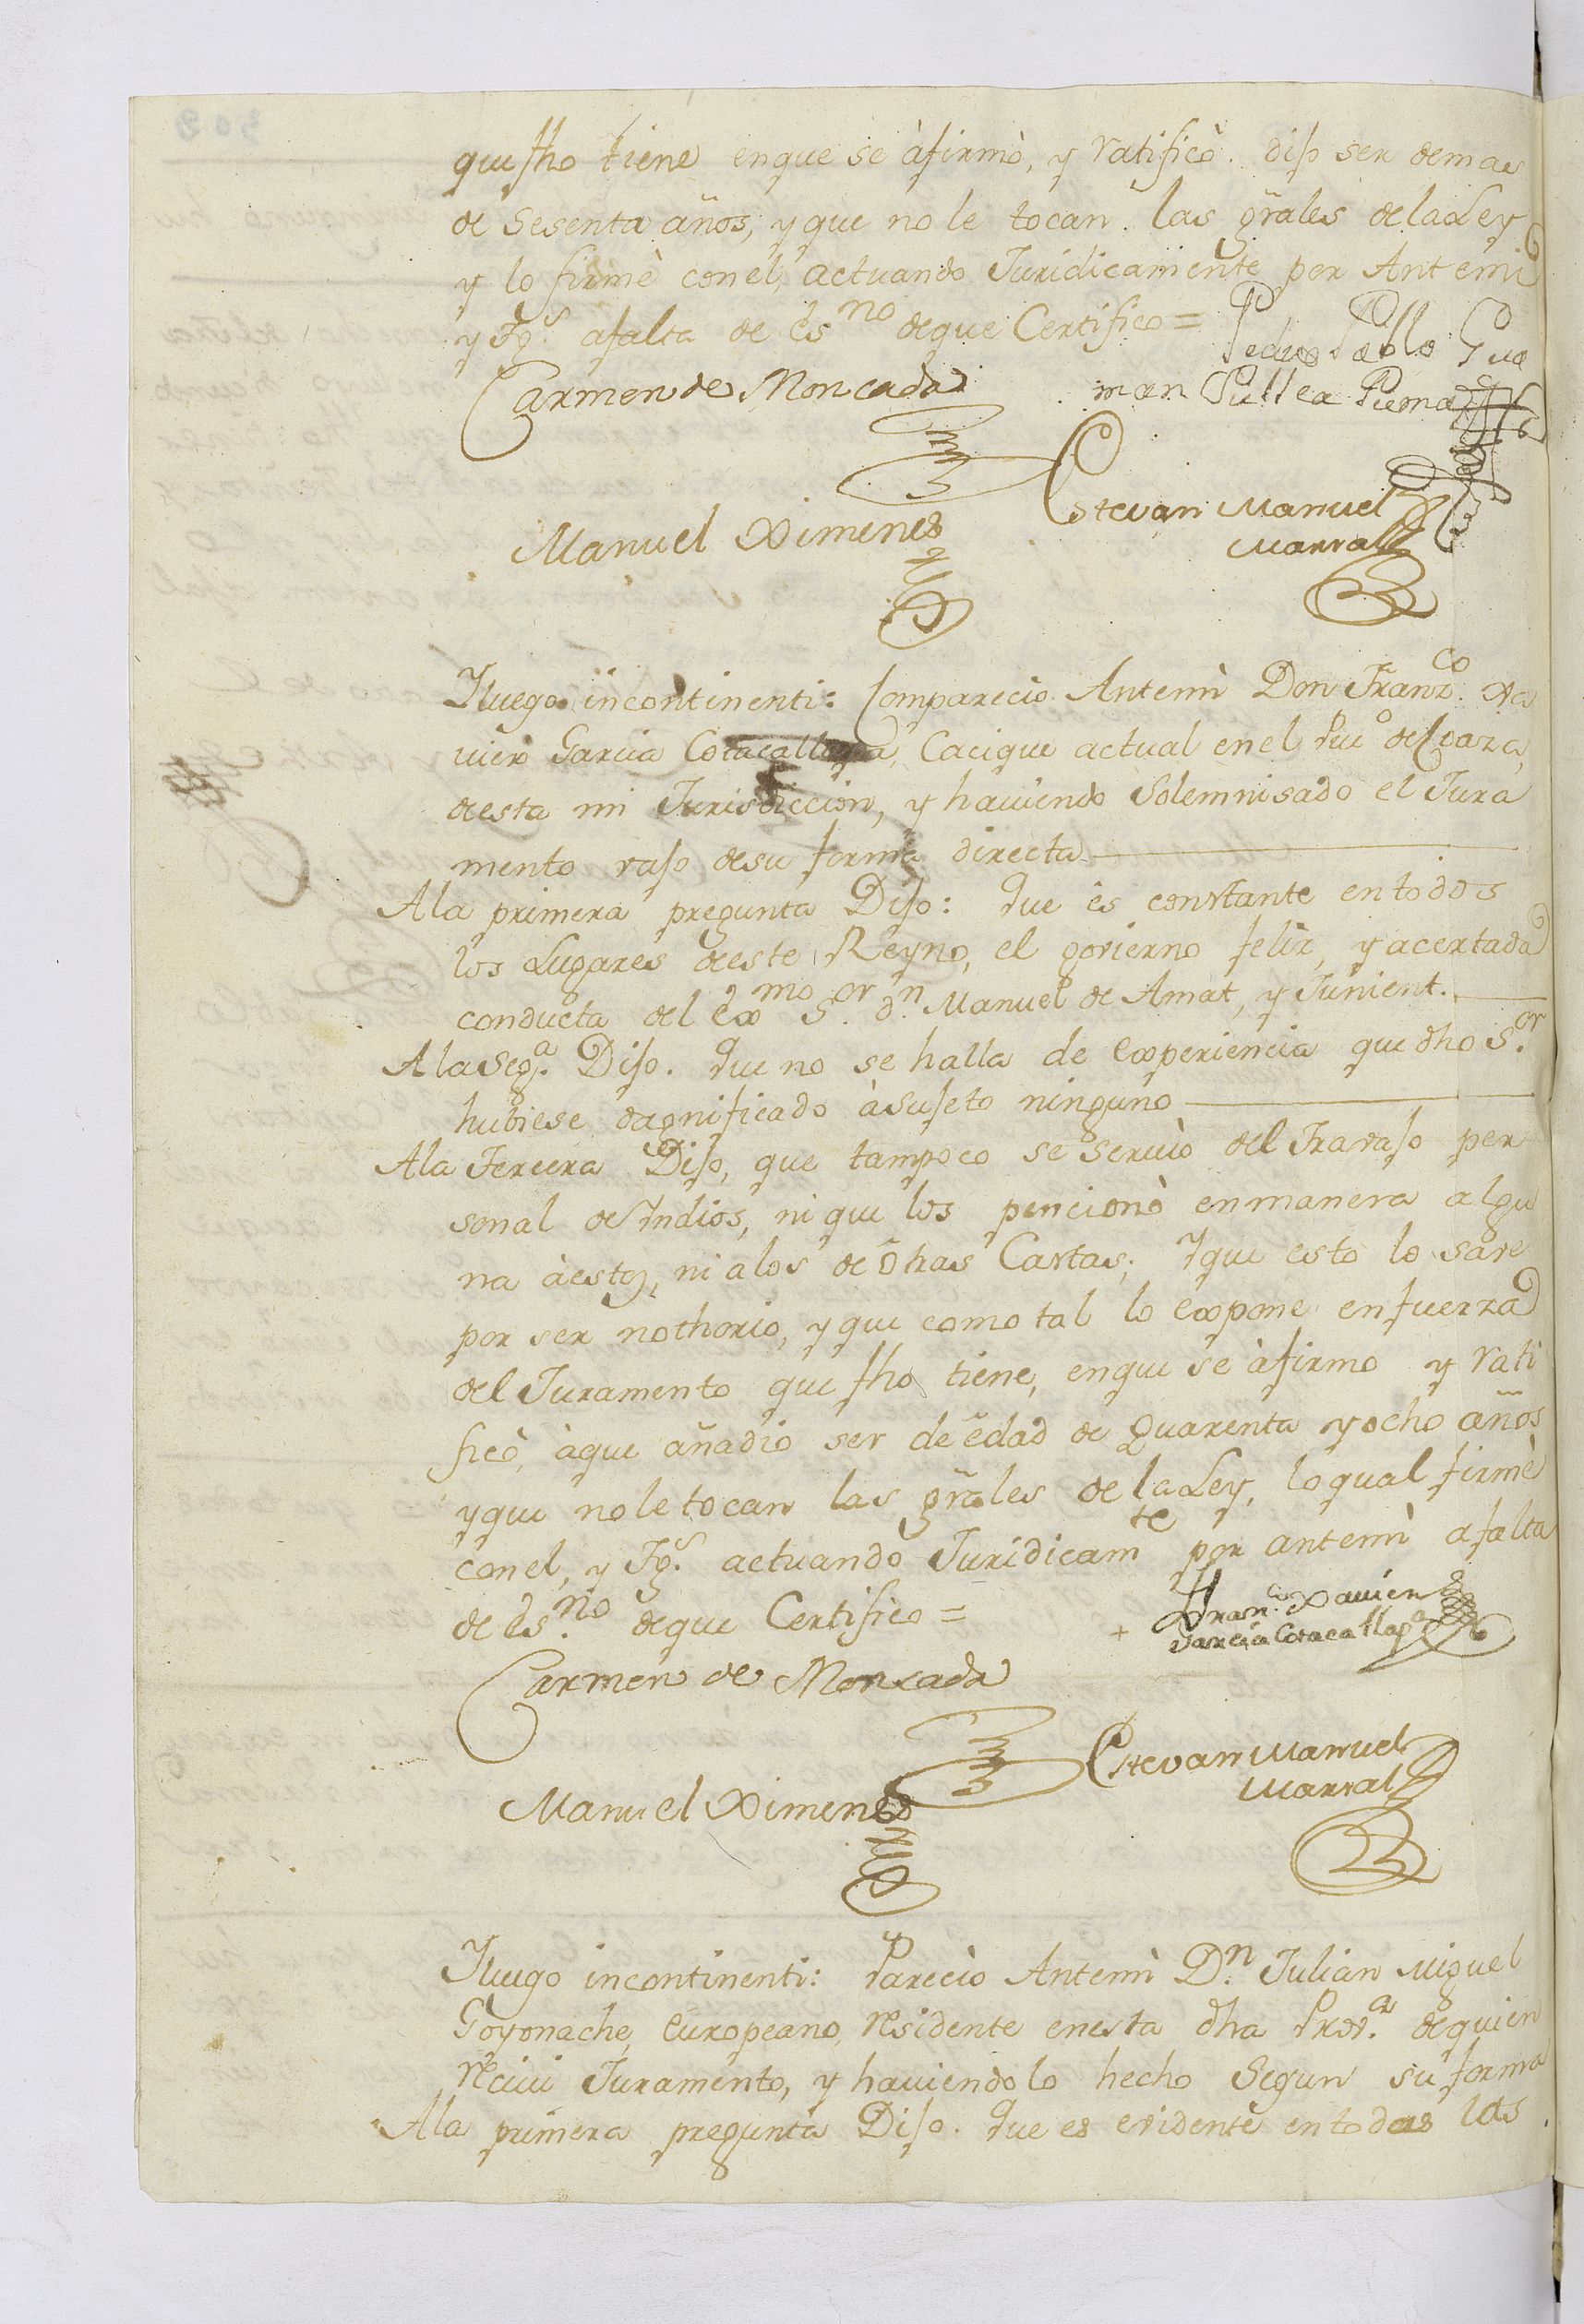 que fho tiene enque se àfirmò, y ratificò. dijo ser demas
de sesenta años, y que no le tocan las grãles dela Ley
y lo firmè con el, actuando Juridicamente por Antemi
y Tg.s afalta de Es.no deque Certifico =
Pedro Pablo Gua
man Pullca Puma
Carmen de Moncada
Estevan Manuel
Marral
Manuel Ximenes
Yluego incontinenti: Comparecio Antemì Don Franz.co Xa
vier Garcia Cotacallapa, Cacique actual en el Pue.o de Coaza,
desta mi Jurisdiccion, y haviendo Solemnisado el Jura
mento vajo desu forma directa
Ala primera pregunta Dijo: Que es constante en todos
los Lugares deeste Reyno, el govierno feliz, y acertada
conducta del Exmo S.or d.n Manuel de Amat, y Junient.
Ala Seg.a Dijo. Que no se halla de Experiencia que dho S.or
hubiese dagnificado à sujeto ninguno
Ala Tercera Dijo, que tampoco se serviò del Travajo per
sonal de Indios, ni que los pencionò en manera algu
na à estos, ni alos de òtras Castas; Y que esto lo save
por ser nothorio, y que como tal lo Expone en fuerza
del Juramento que fho tiene, enque se àfirmo y rati
ficò, àque añadio ser de edad de Quarenta y ocho años
y que no le tocan las grãles de la Ley, lo qual firmè
con el, y Tg.s actuando Juridicam.te por antemì afalta
de Es.no deque Certifico =
+ Fran.co Xavier
Garcia Cotacallapa
Carmen de Moncada
Estevan Manuel
Marral
Manuel Ximenes
Yluego incontinenti: Pareciò Antemì D.n Julian Miguel
Goyonache, Europeano, residente enesta dha Prov.a dequien
recivi Juramento, y haviendolo hecho Segun su forma
Ala primera pregunta Dijo. Que es evidente en todos los